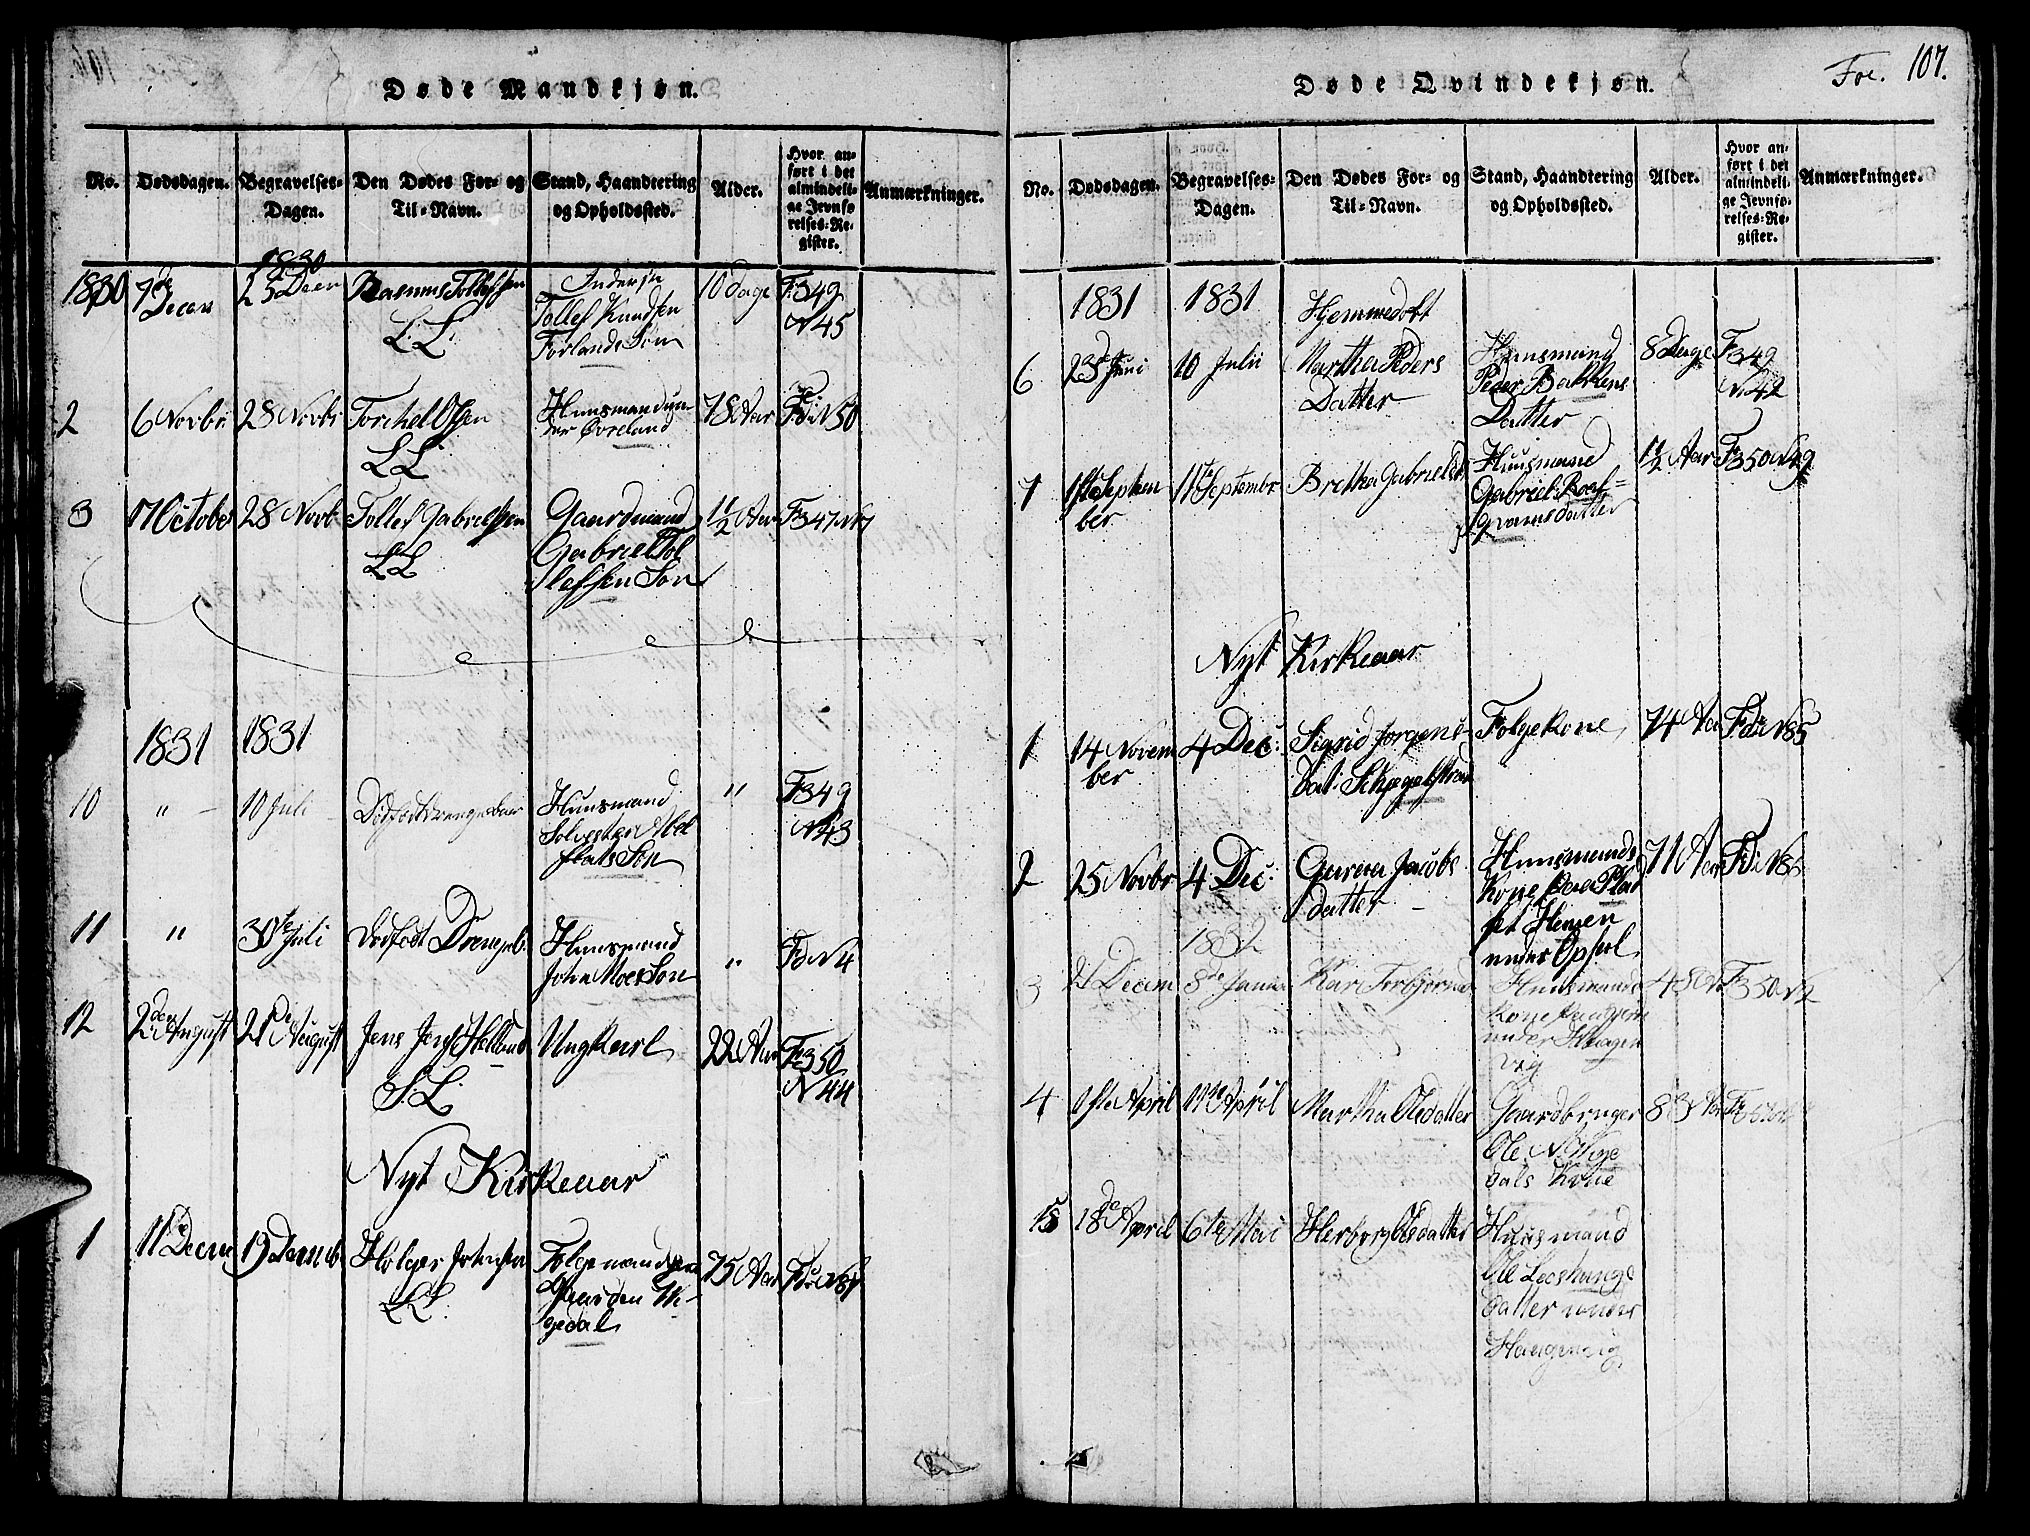 Døde Mandkjøn.
No.
Dødsdagen.
Begravelses-
Dagen.
Den Dødes For- og
Til-Navn.
Stand, Haandtering
og Opholdssted.
Alder.
Hvor an-
ført i det
almindeli-
ge Jevnfø-
relses-Re-
gister.
Anmærkninger.
1830
1830
7de
Decem
Rasmus Tollefsen
LL
Inderste
Tollef Knudsen
Forlands Søn
10 dage
F 349
N 45
2
6 Novbr
28 Novbr
Torchel Olsen
LL
Huusmand un-
der Øvreland
78 Aar
Fdi N 50
3
17 October
28 Novb
Tollef Gabrielsen
LL
Gaardmand
Gabriel Tol
lefsen Søn
1 1/2 Aar
F 347
1831
1831
10
" -
10 Juli
Dødfødt
Huusmand
Søn
"
F 349
N 43
11
"
30te Juli
Dødfødt Drengeb.
Huusmand
John Moes Søn
"
Fd N 4
12
2den August
21de August
Jens Jens Helland
S.L.
Ungkarl
22 Aar
F 350
N 44
Nyt Kirkeaar
1
11 Decem
19 Decemb
Holger Johnsen
LL
Folgemand paa
Gaarden Wi-
gedal
75 Aar
Døde Qvindekjøn.
Fol. 107.
No.
Dødsdagen.
Begravelses-
Dagen.
Den Dødes For- og
Til-Navn.
Stand, Haandtering
og Opholdssted.
Alder.
Hvor an-
ført i det
almindeli-
ge Jevnfø-
relses-Re-
gister.
Anmærkninger.
1831
1831
Hjemmedøbt
6
23 Juni
10 Julii
Martha Peders
Datter
Huusmand
Peder Bakkens
Datter
8 Dage
F 349
N 42
7
1ste Septem
ber
11te Septembr
Brettha Gabrielsd
Huusmand
Gabriel
datter
1 1/2 Aar
F 350 N 49
Nyt Kirkeaar
1
14 Novem
ber
4 Dec:
Sigrid Jørgens-
dat:
Folgekone
74 Aar
Fdi N 85
2
25 Novbr
4 Dec:
Gurina Jacobs
datter -
Huusmands
Kone paa Plad
set Hemen
under Opsal
71 Aar
Fdi N 86
1832
3
21 Decem
8de Janua
Kari Torbjørnsd
Huusmands
Kone
under Haagen
vig
48
F 350 N 2
4
1ste April
11te April
Martha Olsdatter
Gaardbruger
Ole N Wige
dals Kone
83 Aar
5
18de April
6te Mai
Herborg Olsdatter
Huusmand
Ole
datter under
Haagenvig